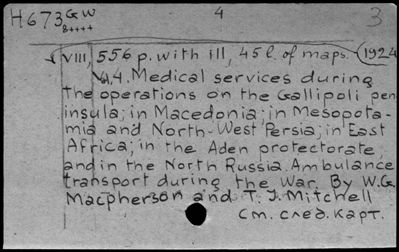 H673 GW 4 3
B++++
VIII, 556 p. with ill, 45 l. of maps. 1924
V.4. Medical services during
the operations on the Gallipoli pen
insula; in Macedonia; in Mesopota-
mia and North-West Persia; in East
Africa; in the Aden protectorate,
and in the North Russia. Ambulance
transport during the War. By W.G.
Macpherson and T. J. Mitchell
См. след. карт.